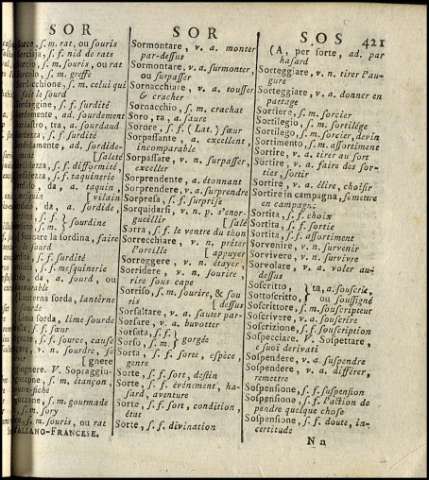 SOR
SOR
SOS
421
s. m. rat, ou souris
s. f. nid de rats
s. m. souris, ou rat
s. m. greffe
s. m. celui qui
fait le sourd
s. f. surdité
ad. sourdement
tra, a. sourdaud
s. f. surdité
ad. sordide-
[saleté
s. f. difformité,
s. f. taquinerie
da, a. taquin,
[vilain
da, a. sordide
s. f. } sourdine
la sordina, faire
le sourd
s. f. surdité
s. f. mesquinerie
da, a. sourd, ou
sorda, lanterne
sourde
sorda, lime sourde
s. f. sœur
s. f. source, cause
v. n. sourdre, so
[gnere
V. Sopraggiu-
s. m. étançon,
s. m. sory
s. m. souris, ou rat
ITALIANO-FRANCESE.
Sormontare, v. a. monter
par-dessus
Sormontare, v. a. surmonter,
ou surpasser
Sornacchiare, v. a. tousser
& cracher
Sornacchio, s. m. crachat
Soro, ra, a. saure
Sorore, s. f. (Lat.) sœur
Sorpassante, a. excellent,
incomparable
Sorpassare, v. n. surpasser,
exceller
Sorprendente, a. étonnant
Sorprendere, v. a. surprendre
Sorpresa, s. f. surprise
Sorquidarsi, v. n. p. s'enor-
gueillir [salé
Sorra, s. f. le ventre du thon
Sorrecchiare, v. n. prêter
l'oreille [appuyer
Sorreggere, v. n. étayer,
Sorridere, v. n. sourire,
rire sous cape
Sorriso, s. m. sourire, & sou
ris [dessus
Sorsaltare, v. a. sauter par-
Sorsare, v. a. buvotter
Sorsata, s. f. }
Sorso, s. m. } gorgée
Sorta, s. f. sorte, espèce,
genre
Sorte, s. f. sort, destin
Sorte, s. f. événement, ha-
sard, aventure
Sorte, s. f. sort, condition,
état
Sorte, s. f. divination
(A, per sorte, ad. par
hasard
Sorteggiare, v. n. tirer l'au-
gure
Sorteggiare, v. a. donner en
partage
Sortiere, s. m. sorcier
Sortilegio, s. m. sortilége
Sortilego, s. m. sorcier, devin
Sortimento, s. m. assortiment
Sortire, v. a. tirer au sort
Sortire, v. a. faire des sor-
ties, sortir
Sortire, v. a. élire, choisir
Sortire in campagna, se mettre
en campagne
Sortita, s. f. choix
Sortita, s. f. sortie
Sortita, s. f. assortiment
Sorvenire, v. n. survenir
Sorvivere, v. n. survivre
Sorvolare, v. a. voler au-
dessus
Soscritto, } ta, a. souscrit,
Sottoscritto, } ou soussigné
Soscrittore, s. m. souscripteur
Soscrivere, v. a. souscrire
Soscrizione, s. f. souscription
Sospecciare. V. Sospettare,
e suoi derivati
Sospendere, v. a. suspendre
Sospendere, v. a. différer,
remettre
Sospensione, s. f. suspension
Sospensione, s. f. l'action de
pendre quelque chose
Sospensione, s. f. doute, in-
certitude
N n